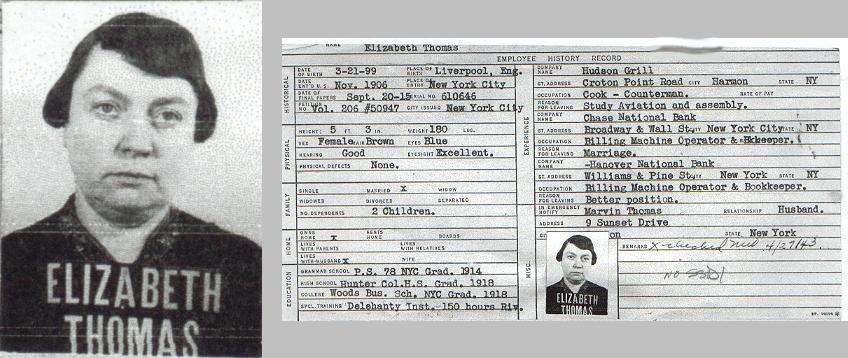 ELIZABETH
THOMAS
NAME Elizabeth Thomas
EMPLOYEE HISTORY RECORD
HISTORICAL
DATE OF BIRTH 3-21-99 PLACE OF BIRTH Liverpool, Eng.
DATE ENT'D U.S. Nov. 1906 PLACE OF ENTRY New York City
DATE OF FINAL PAPERS Sept. 20-15 SERIAL 610646
PETITION NO. Vol. 206 #50947 CITY ISSUED New York City
PHYSICAL
HEIGHT: 5 FT. 3 IN. WEIGHT 180 LBS.
SEX Female HAIR Brown EYES Blue
HEARING Good EYESIGHT Excellent.
PHYSICAL DEFECTS None.
FAMILY
SINGLE MARRIED X WIDOW
WIDOWED DIVORCED SEPARATED
NO. DEPENDENTS 2 Children.
HOME
OWNS HOME X RENTS HOME BOARDS
LIVES WITH PARENTS LIVES WITH RELATIVES
LIVES WITH HUSBAND X WIFE
EDUCATION
GRAMMAR SCHOOL P.S. 78 NYC Grad. 1914
HIGH SCHOOL Hunter Col.H.S. Grad. 1918
COLLEGE Woods Bus. Sch. NYC Grad. 1918
SPCL. TRAINING Delehanty Inst.-150 hours Riv.
EXPERIENCE
COMPANY NAME Hudson Grill
ST. ADDRESS Croton Point Road CITY Harmon STATE NY
OCCUPATION Cook - Counterman. RATE OF PAY
REASON FOR LEAVING Study Aviation and assembly.
COMPANY NAME Chase National Bank
ST. ADDRESS Broadway & Wall St. CITY New York City STATE NY
OCCUPATION Billing Machine Operator & Bkkeeper.
REASON FOR LEAVING Marriage.
COMPANY NAME -Hanover National Bank
ST. ADDRESS Williams & Pine St. CITY New York STATE NY
OCCUPATION Billing Machine Operator & Bookkeeper.
REASON FOR LEAVING Better position.
MISC.
IN EMERGENCY NOTIFY Marvin Thomas RELATIONSHIP Husband.
ADDRESS 9 Sunset Drive
on STATE New York
REMARKS 4/27/43
NO
ELIZABETH
THOMAS